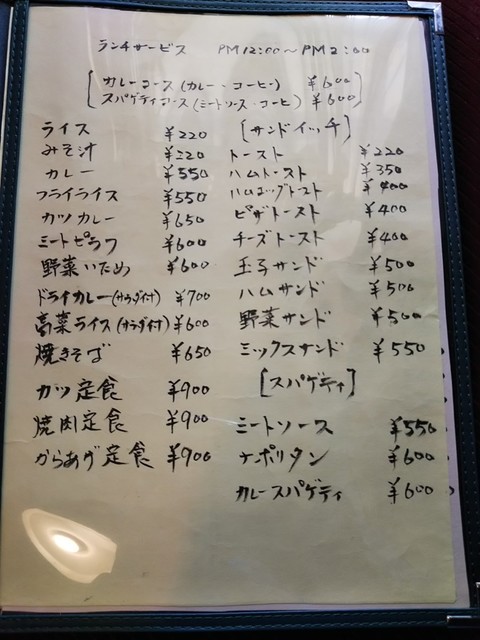 ランチサービス PM12:00～PM2:00
カレーコース(カレー・コーヒー) ¥600
スパゲティコース(ミートソース・コーヒ) ¥600
ライス ¥220
みそ汁 ¥220
カレー ¥550
フライライス ¥550
カツカレー ¥650
ミートピラフ ¥600
野菜いため ¥600
ドライカレー(サラダ付) ¥700
高菜ライス(サラダ付) ¥600
焼きそば ¥650
カツ定食 ¥900
焼肉定食 ¥900
からあげ定食 ¥900
[サンドイッチ]
トースト ¥220
ハムトースト ¥350
ハムエッグトースト ¥400
ピザトースト ¥400
チーズトースト ¥400
玉子サンド ¥500
ハムサンド ¥500
野菜サンド ¥500
ミックスサンド ¥550
[スパゲティ]
ミートソース ¥550
ナポリタン ¥600
カレースパゲティ ¥600